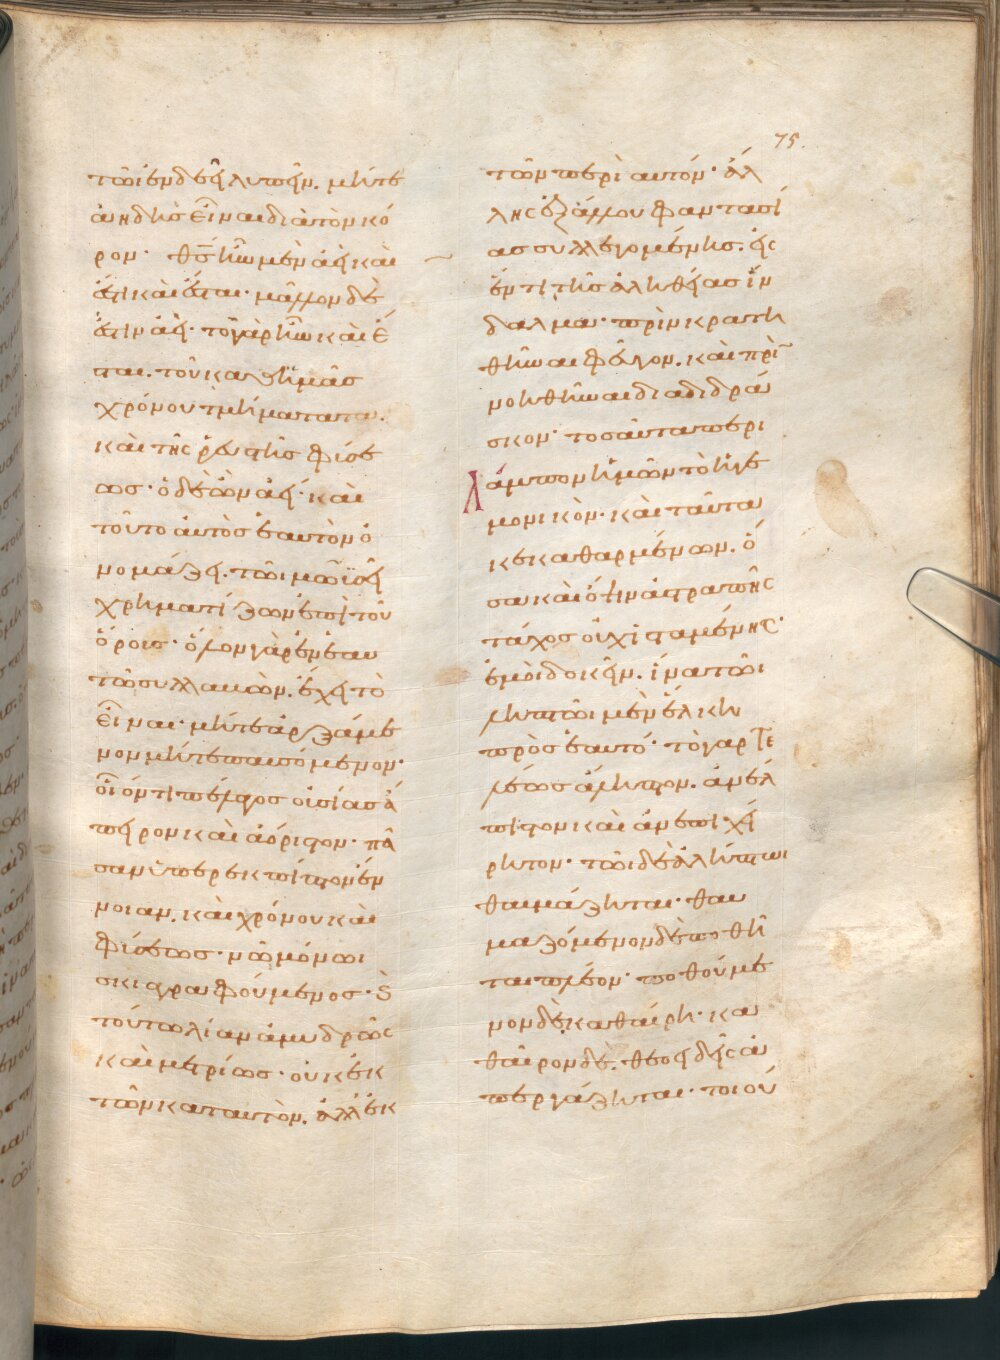 75.
τῶι ἐνδεεῖ λυπεῖν. μήτε
ἀηδὴς εἶναι διὰ τὸν κό
ρον· θς ἦν μὲν ἀεὶ καὶ
ἔστι καὶ ἔσται· μᾶλλον δὲ
ἔστιν ἀεί· τὸ γὰρ ἦν καὶ ἔ
σται. τοῦ καθ ἡμᾶς
χρόνου τμήματα
καὶ τῆς ῥευστῆς φύσε
ως· ὁ δὲ ὢν ἀεί· καὶ
τοῦτο αὐτὸς ἑαυτὸν ὀ
νομάζει. τῶι μωϋσεῖ
χρηματίζων ἐπὶ τοῦ
ὄρους· ὅλον γὰρ ἐν ἑαυ
τῶ συλλαβὼν. ἔχει τὸ
εἶναι· μήτε ἀρξάμε
νον μήτε παυσόμενον·
οἷόν τι πέλαγος οὐσίας ἄ
πειρον καὶ ἀόριστον· πᾶ
σαν ὑπερεκπίπτον ἔν
νοιαν. καὶ χρόνου καὶ
φύσεως· νῶ μόνωι
σκιαγραφούμενος· καὶ
τοῦτο λίαν ἀμυδρῶς
καὶ μετρίως· οὐκ ἐκ
τῶν κατ αυτὸν. ἀλλ ἐκ
τῶν περὶ αυτόν· ἄλ
λης ἐξ ἄλλου φαντασί
ας συλλεγομένης· εἰς
ἕν τι τῆς ἀληθείας ἴν
δαλμα· πρὶν κρατη
θῆναι φεῦγον. καὶ πρὶν
νοηθῆναι διαδιδρά
σκον· τοσαῦτα περι
λάμπον ἡμῶν τὸ ἡγε
μονικὸν· καὶ ταῦτα
κεκαθαρμένων. ὅ
σα καὶ ὄψιν ἀστραπῆς
τάχος οὐχ ἱσταμένης·
ἐμοὶ δοκεῖν. ἵνα τῶι
ληπτῶι μὲν ἕλκη
πρὸς ἑαυτό· τὸ γαρ τε
λέως ἄληπτον. ἀνέλ
πιστον καὶ ἀνεπιχεί
ρητον· τῶι δὲ ἀλήπτωι
θαυμάζηται· θαυ
μαζόμενον δὲ ποθῆ
ται πλέον· ποθούμε
νον δὲ καθαίρη· κα
θαῖρον δὲ. θεοειδεῖς ἀ
περγάζηται· τοιού